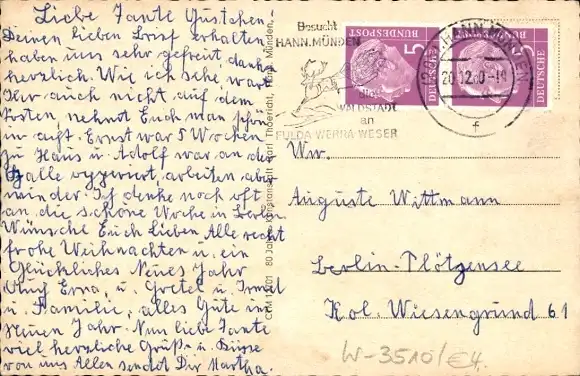 Liebe Tante Gustchen.
Deinen lieben Brief erhalten
haben uns sehr gefreut danke
herzlich. Wie ich sehe wart
Ihr auch nicht auf dem
Posten, nehmt Euch man schön
in acht. Ernst war 5 Wochen
zu Haus u. Adolf war an der
Galle operiert, arbeiten aber
wieder. Ich denke noch oft
an die schöne Woche in Berlin
Wünsche Euch lieben Alle recht
frohe Weihnachten u. ein
Glückliches Neues Jahr
Auch Erna u. Gretel u. Irmel
u. Familie, alles Gute im
Neuen Jahr. Nun liebe Tante
viel herzliche Grüße u. Küsse
von uns Allen sendet Dir Martha.
80 Jahre Kunstanstalt Carl Thoericht, Hann. Münden,
Besucht
HANN.MÜNDEN
DIE
WALDSTADT
an
FULDA WERRA WESER
DEUTSCHE
BUNDESPOST
5
DEUTSCHE
BUNDESPOST
5
HANN. MÜNDEN
20.12.60-
f
Ww.
Auguste Wittmann
Berlin-Plötzensee
Kol. Wiesengrund 61
W-3510/€4.